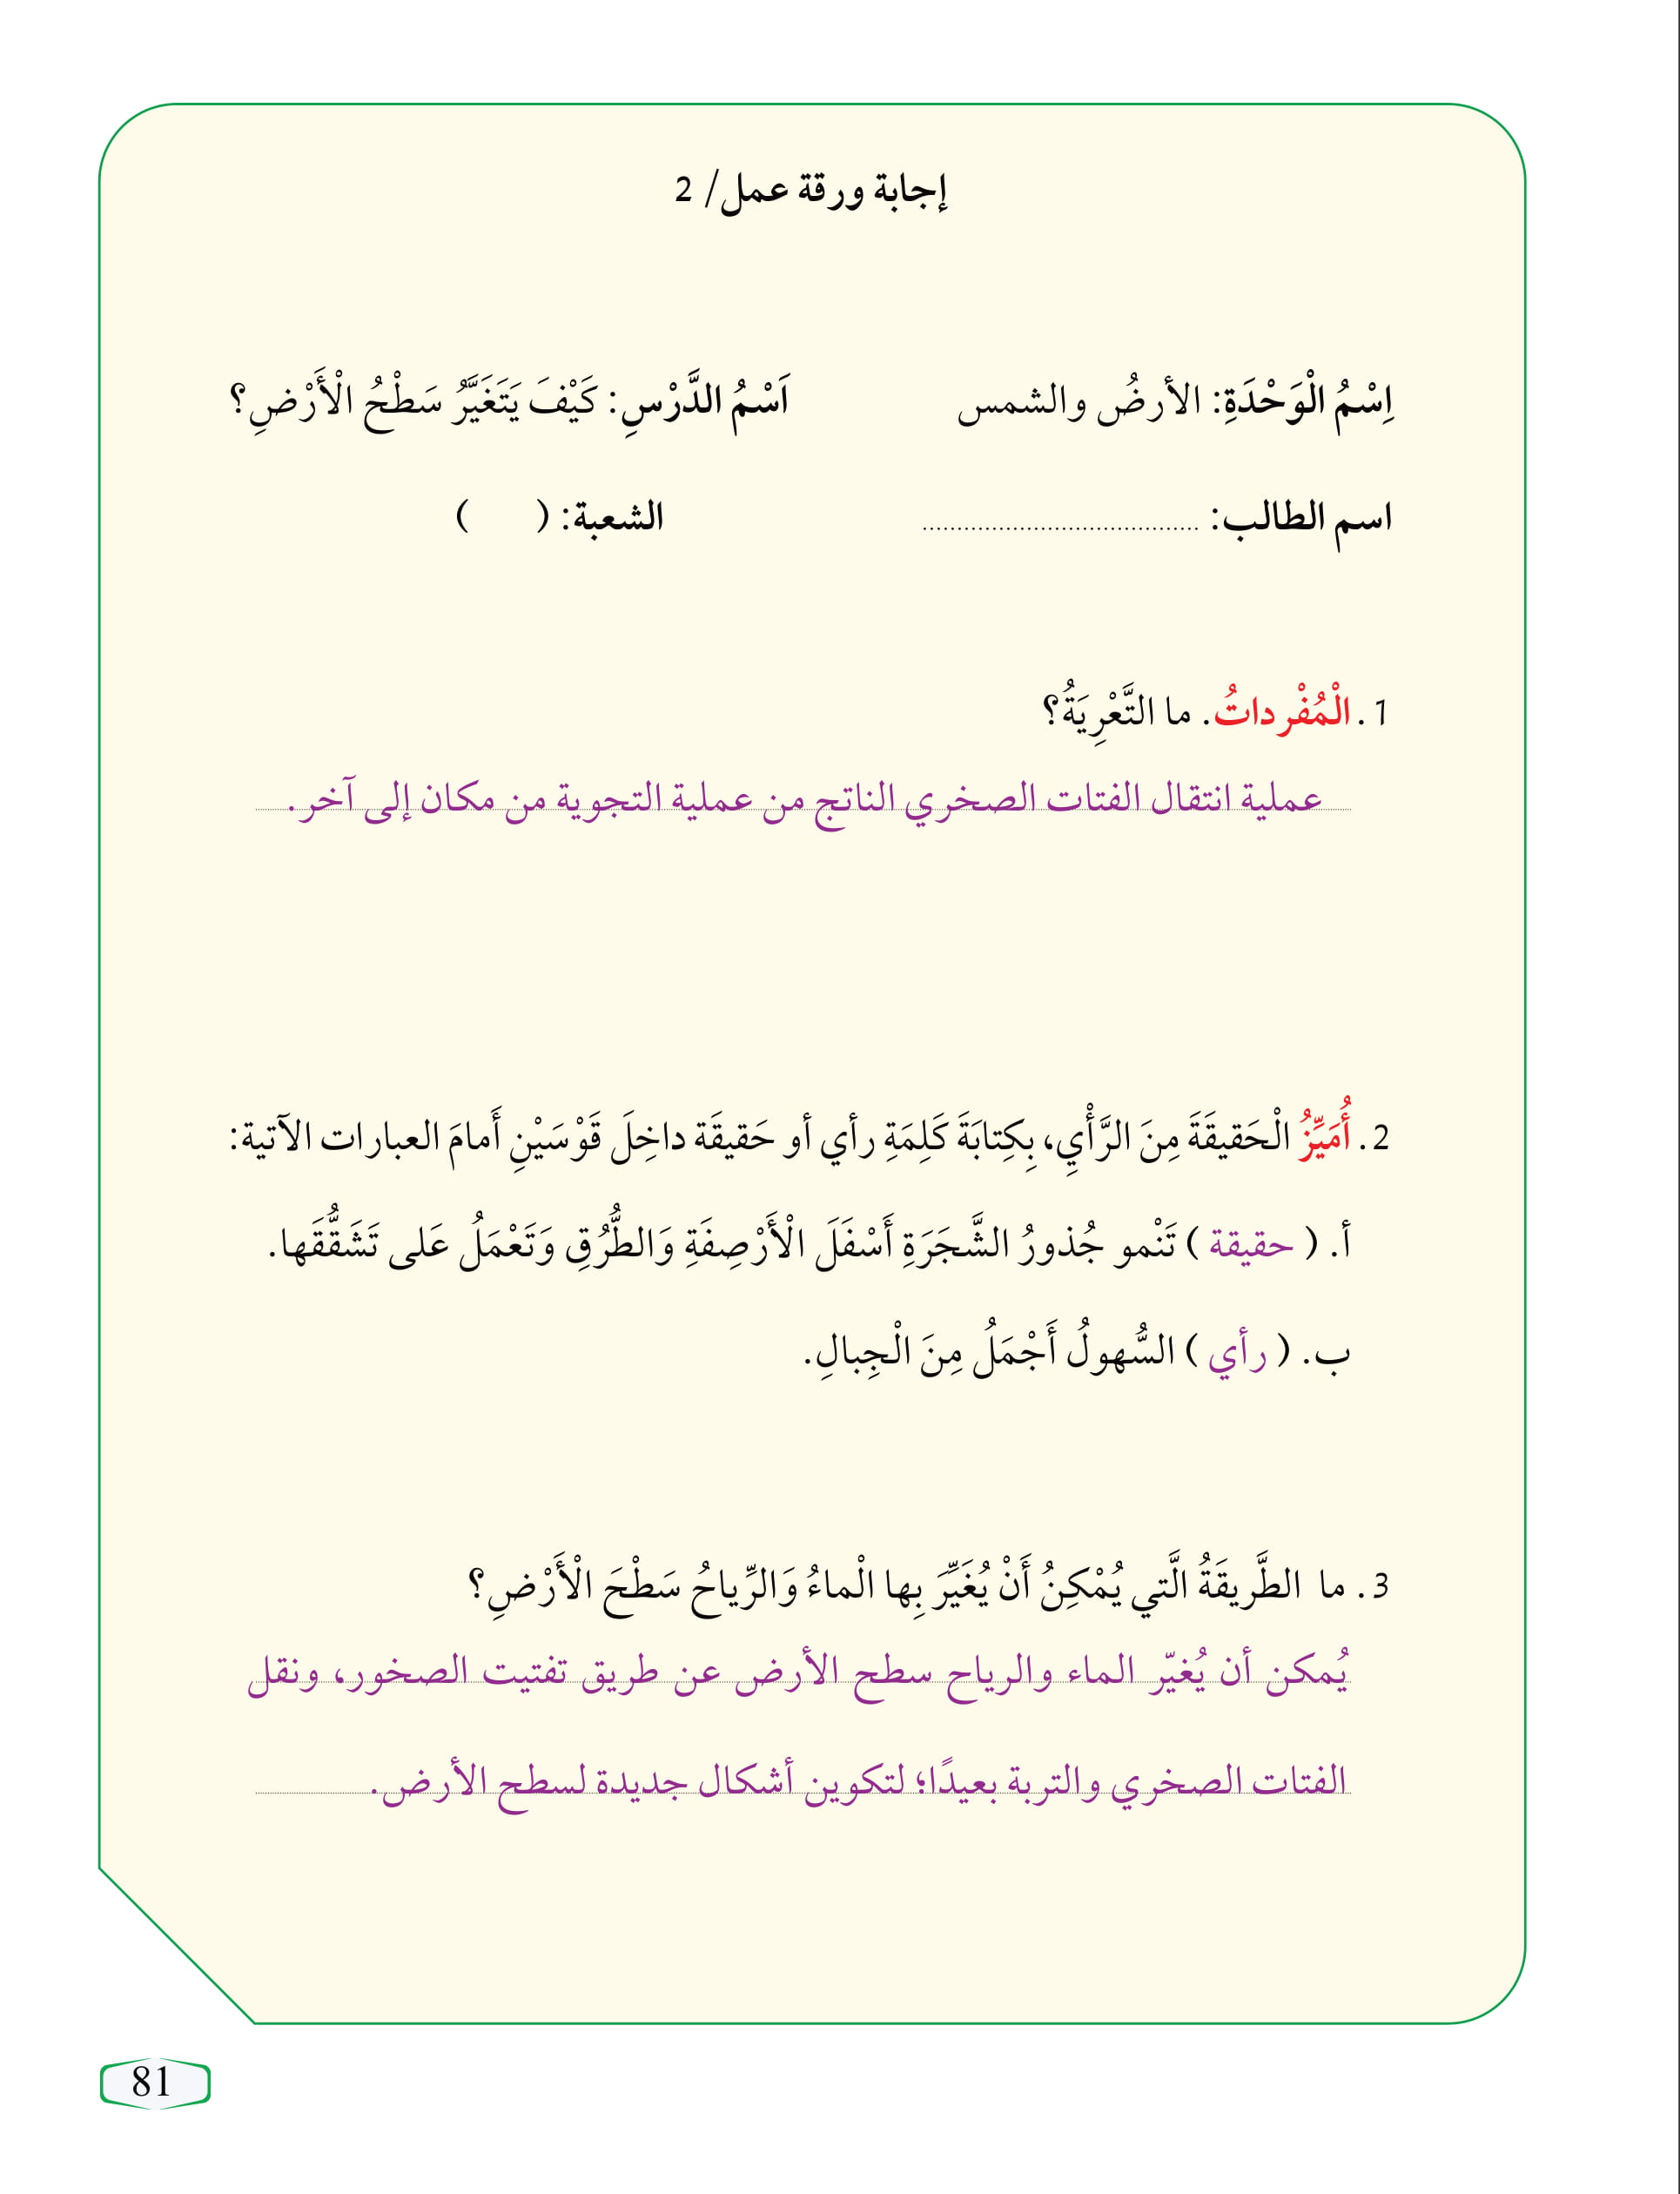 إجابة ورقة عمل/ 2
اِسْمُ الْوَحْدَةِ: الأرضُ والشمس اَسْمُ الدَّرْسِ: كَيْفَ يَتَغَيَّرُ سَطْحُ الْأَرْضِ؟
اسم الطالب: ........................................ الشعبة: ( )
1. الْمُفْرداتُ. ما التَّعْرِيَةُ؟
عملية انتقال الفتات الصخري الناتج من عملية التجوية من مكان إلى آخر.
2. أُمَيِّزُ الْحَقيقَةَ مِنَ الرَّأْيِ، بِكِتابَةَ كَلِمَةِ رأي أو حَقيقَة داخِلَ قَوْسَيْنِ أَمامَ العبارات الآتية:
أ. ( حقيقة ) تَنْمو جُذورُ الشَّجَرَةِ أَسْفَلَ الْأَرْصِفَةِ وَالطُّرُقِ وَتَعْمَلُ عَلى تَشَقُّقَها.
ب. ( رأي ) السُّهولُ أَجْمَلُ مِنَ الْجِبالِ.
3. ما الطَّريقَةُ الَّتي يُمْكِنُ أَنْ يُغَيِّرَ بِها الْماءُ وَالرِّياحُ سَطْحَ الْأَرْضِ؟
يُمكن أن يُغيّر الماء والرياح سطح الأرض عن طريق تفتيت الصخور، ونقل
الفتات الصخري والتربة بعيدًا؛ لتكوين أشكال جديدة لسطح الأرض.
81